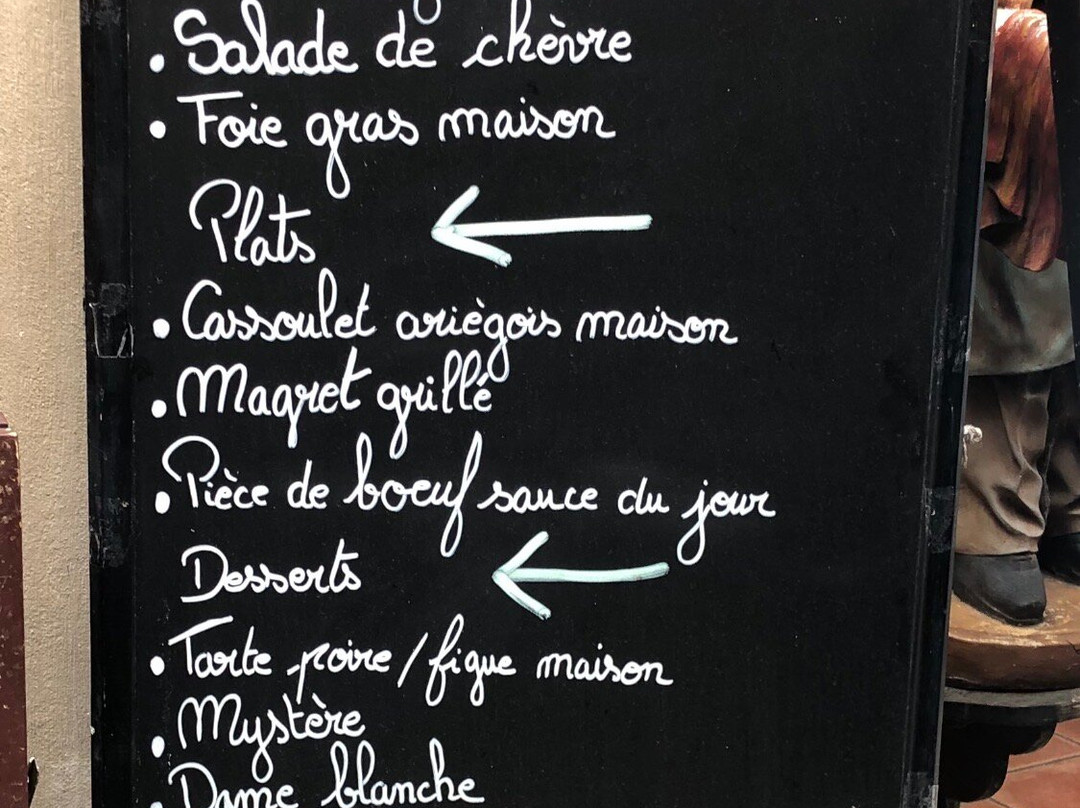 • Salade de chèvre
• Foie gras maison
Plats ←
• Cassoulet ariègois maison
• Magret grillé
• Pièce de boeuf sauce du jour
Desserts ←
• Tarte poire / figue maison
• Mystère
• Dame blanche